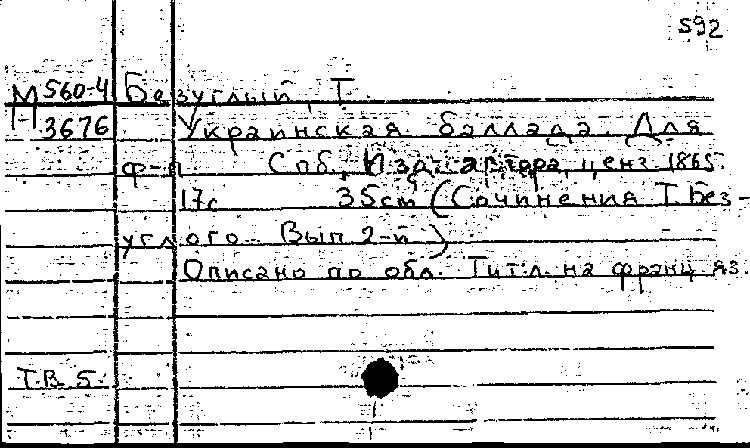 592
М 560-4 Безуглый, Т.
3676 Украинская баллада. Для
ф-п Спб, Изд. автора, ценз. 1865.
17с 35см (Сочинения Т. Без-
углого. Вып 2-й)
Описано по обл. Тит.л. на франц яз.
Т.В. 5.